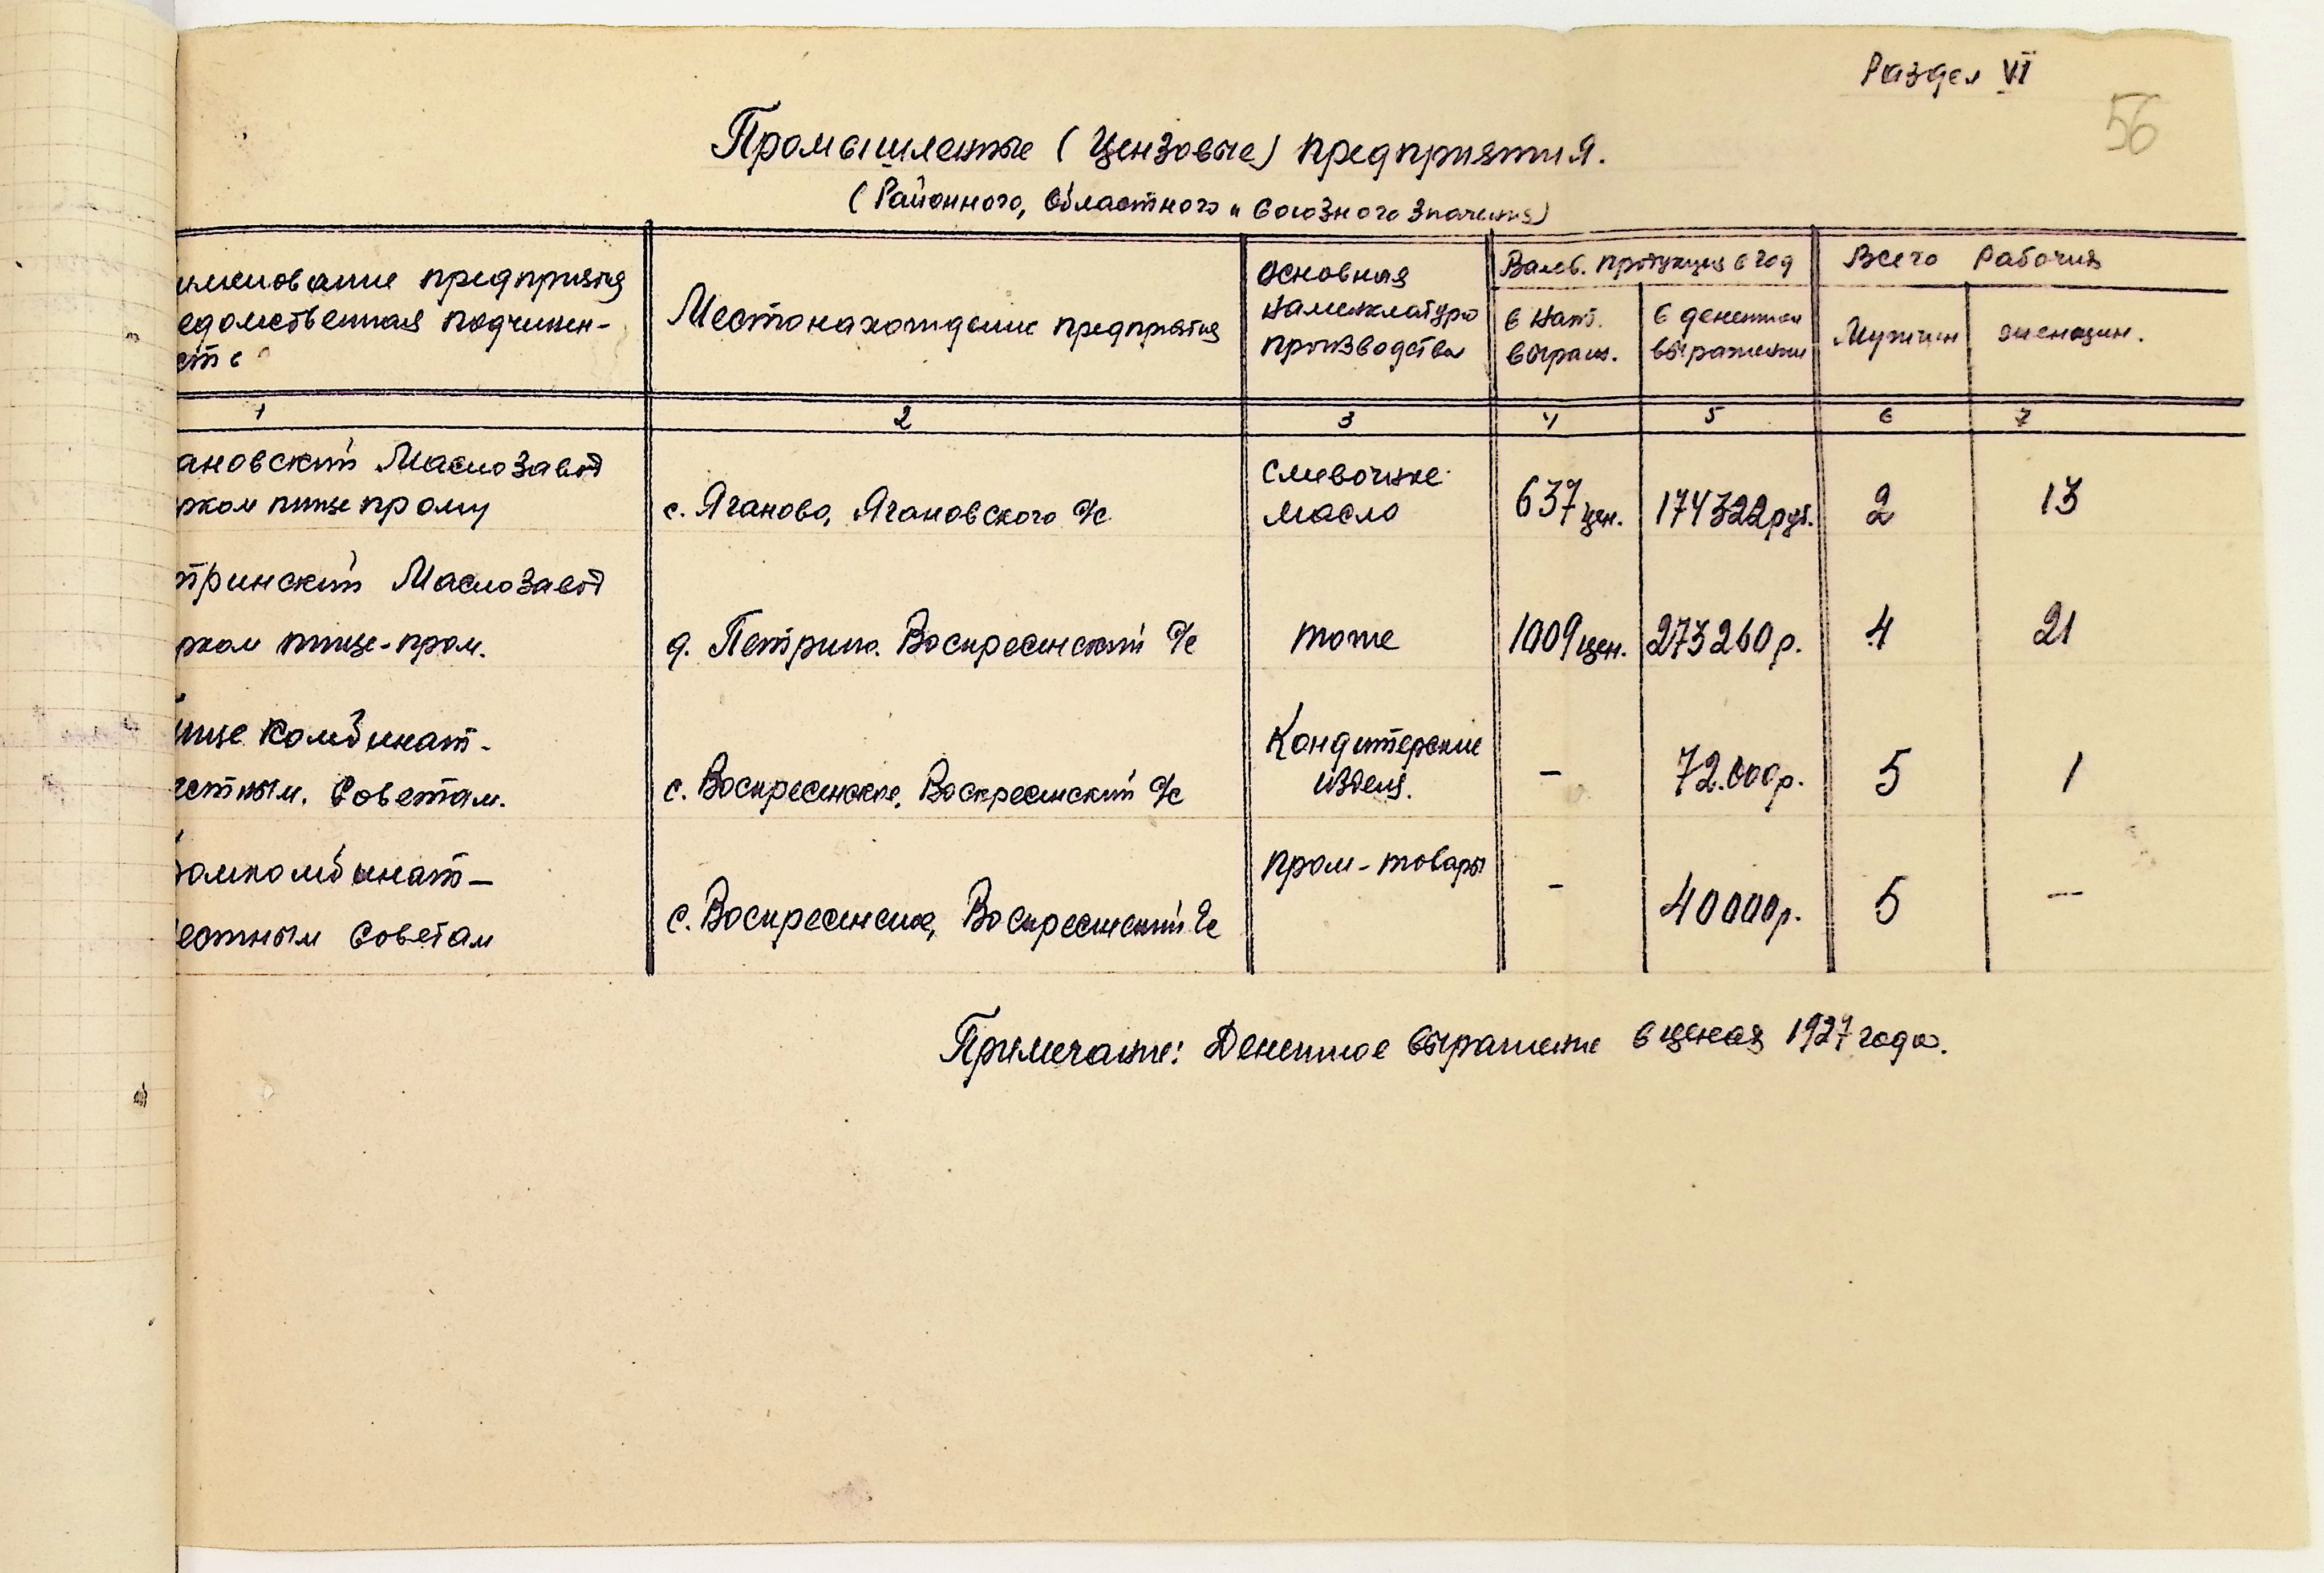 Раздел VI
56
Промышленные (Цензовые) предприятия.
(Районного, Областного и Союзного значения)
именование предприятия
едомственная подчинен-
сть
Местонахождение предприятия
Основная
наменклатура
производства
Валов. продукция в год
в нат.
выраж.
в денежном
выражении
Всего Рабочих
Мужчин
женщин.
1 2 3 4 5 6 7
ановский Маслозавод
рком пищепрому
с. Яганово, Ягановского с/с
Сливочное
масло
637 цен. 174322 руб. 2 13
тринский Маслозавод
рком пище-пром.
д. Петрино. Воскресенский с/с
тоже
1009 цен. 273260 р. 4 21
ище Комбинат-
естным. Советам.
с. Воскресенское, Воскресенский с/с
Кондитерские
издел.
- 72.000р. 5 1
ромкомбинат-
естным Советам
с. Воскресенское, Воскресенский с/с
пром-товары
- 40000р. 5 -
Примечание: Денежное выражение в ценах 1927 года.